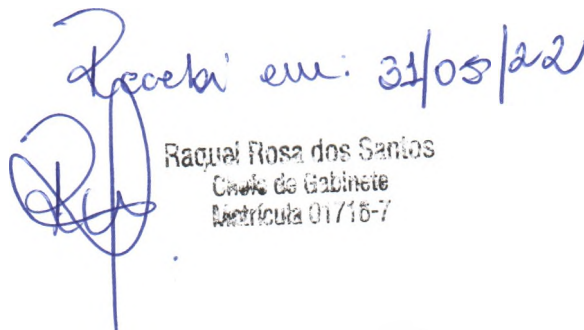 Recebi em: 31/05/22
Raquel Rosa dos Santos
Chefe de Gabinete
Matrícula 01718-7